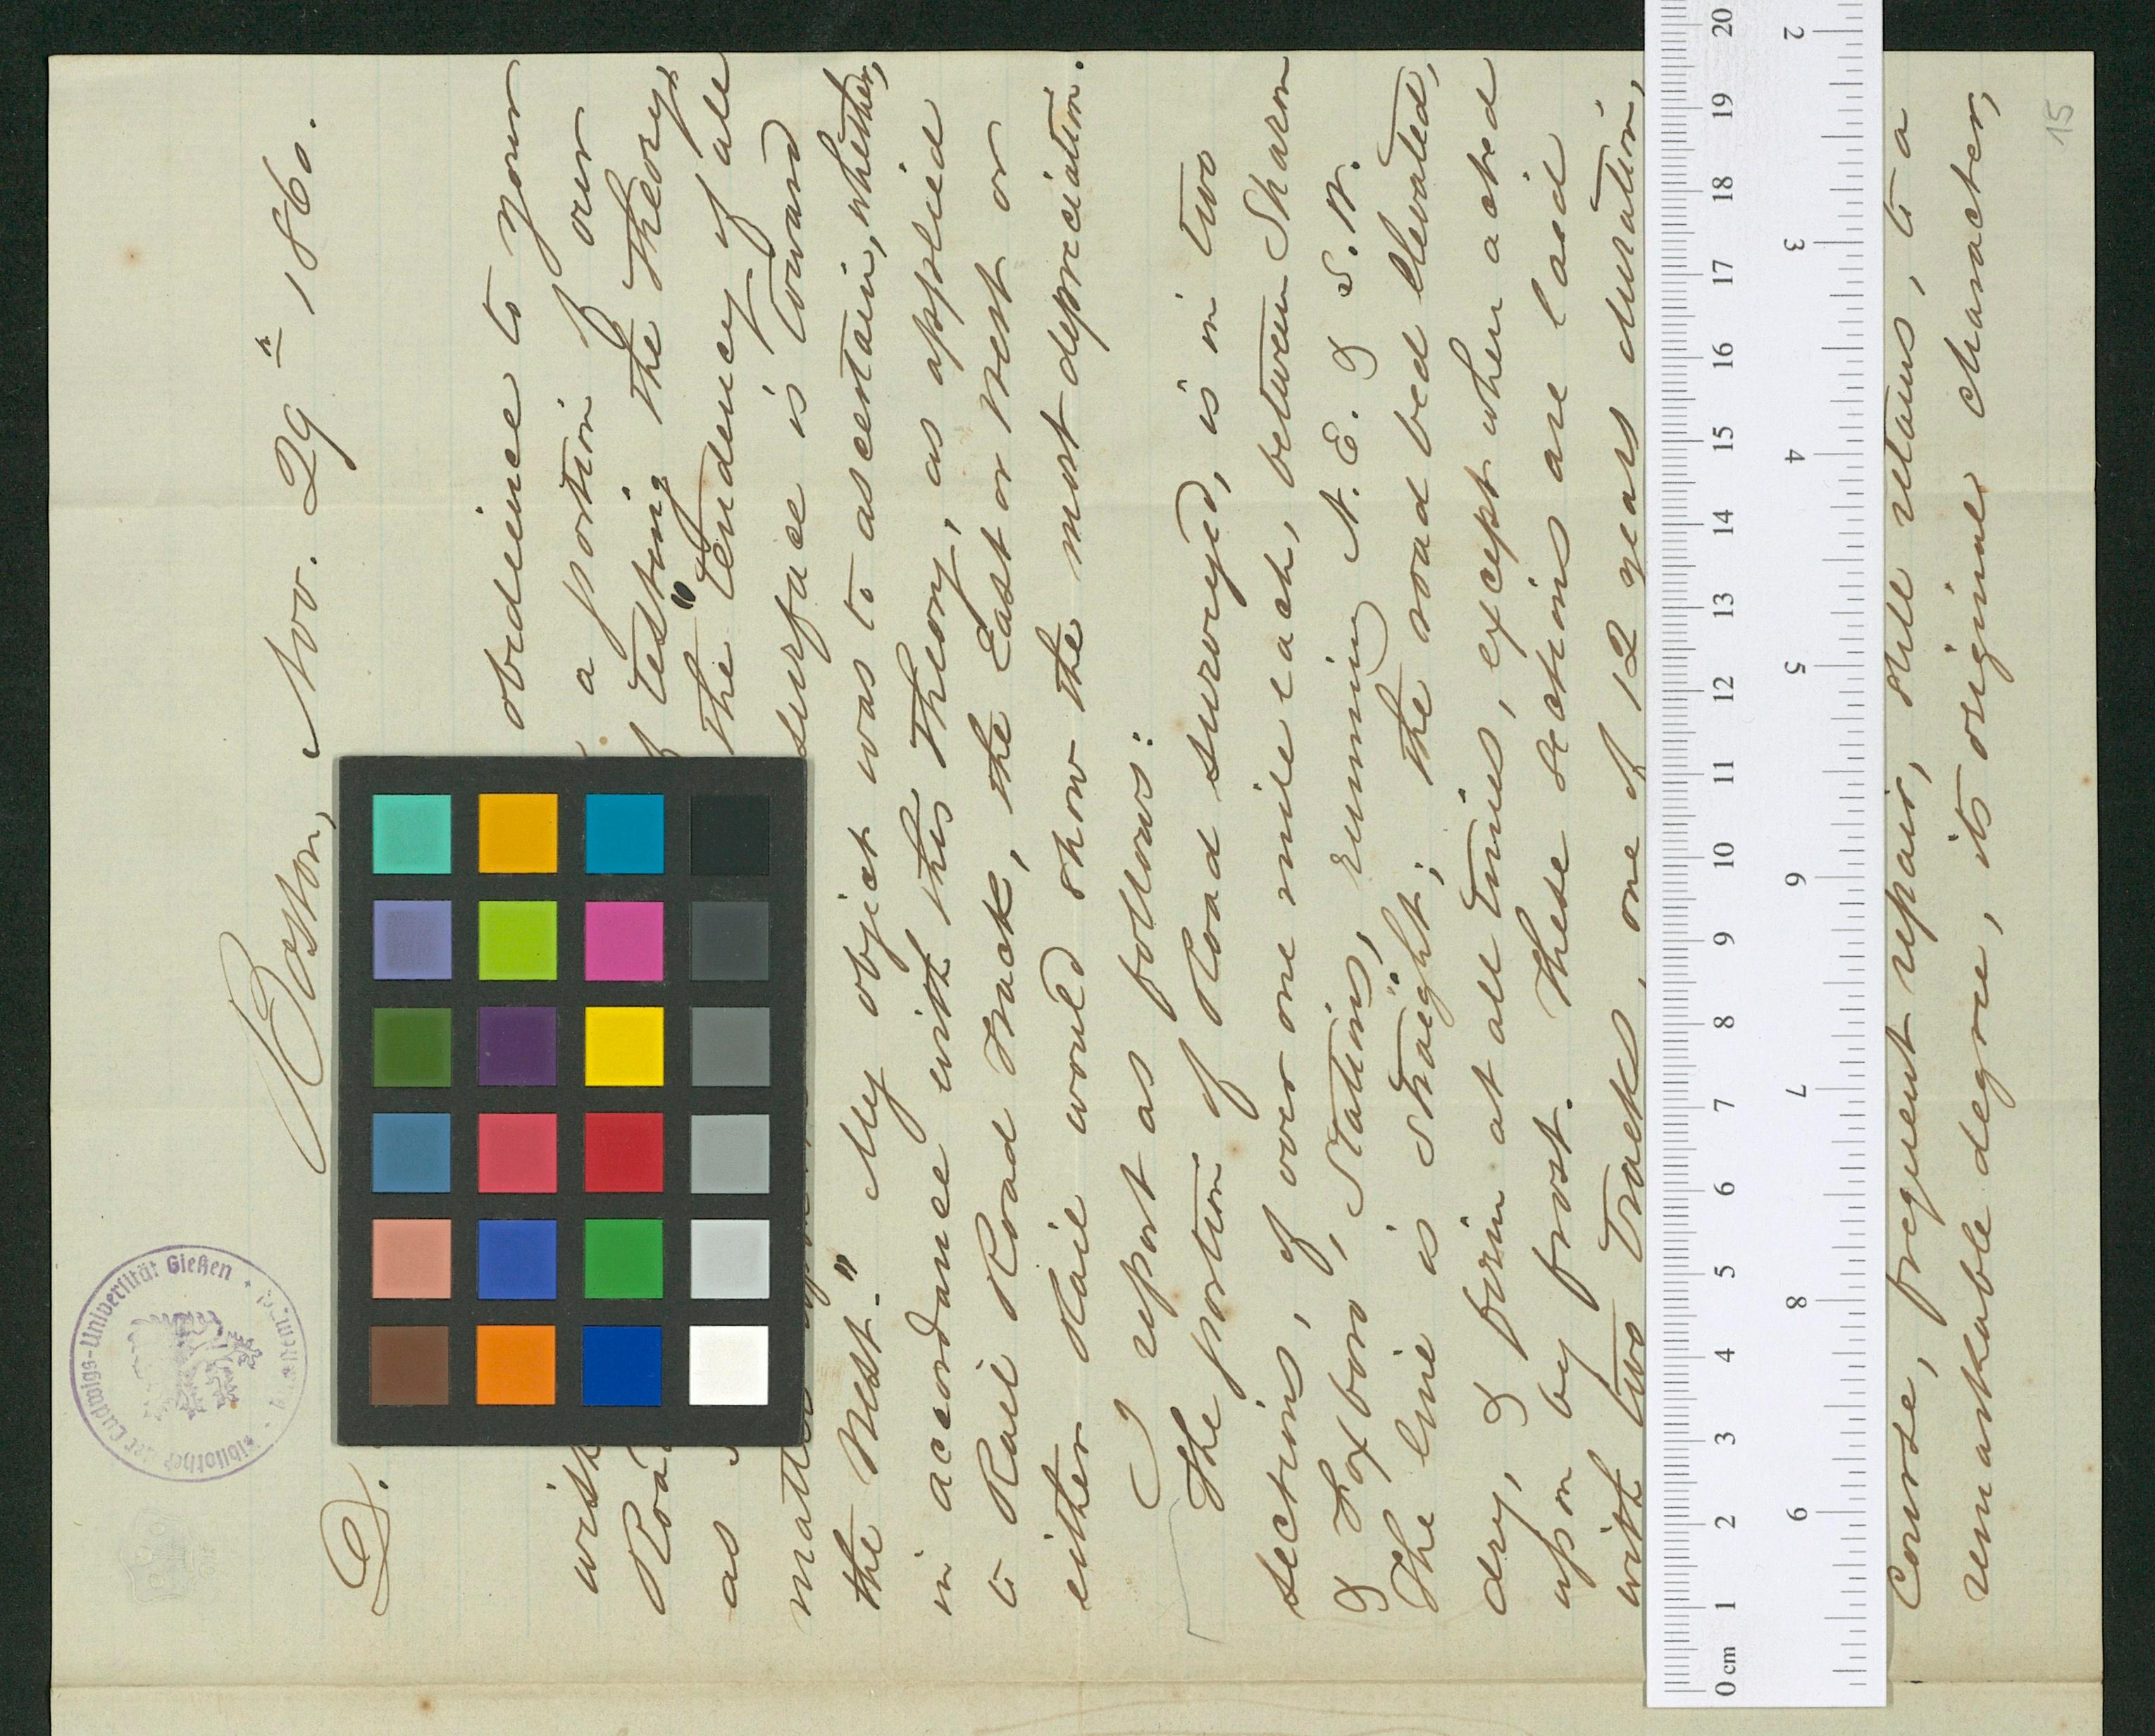 Boston, Nov. 29th 1860.
D.
obedience to your
with a portion of our
Roa of testing the theory
as the "tendency of all
matter surface is toward
the West." My object was to ascertain, whether,
in accordance with this theory, as applied
to Rail Road track, the East or West or
either Rail would show the most depreciation.
I report as follows:
The portion of Road surveyed, is in two
sections, of over one mile each, between Sharon
& Foxboro', Stations, running N.E. & S.W.
The line is straight; the road bed elevated,
dry, & firm at all times, except when acted
upon by frost. These sections are laid
with two tracks, one of 12 years duration,
Course, frequent repair, still retains, to a
remarkable degree, its original character,
15
Bibliothek der Ludwigs-Universität Gießen
0 cm 1 2 3 4 5 6 7 8 9 10 11 12 13 14 15 16 17 18 19 20
2 3 4 5 6 7 8 9